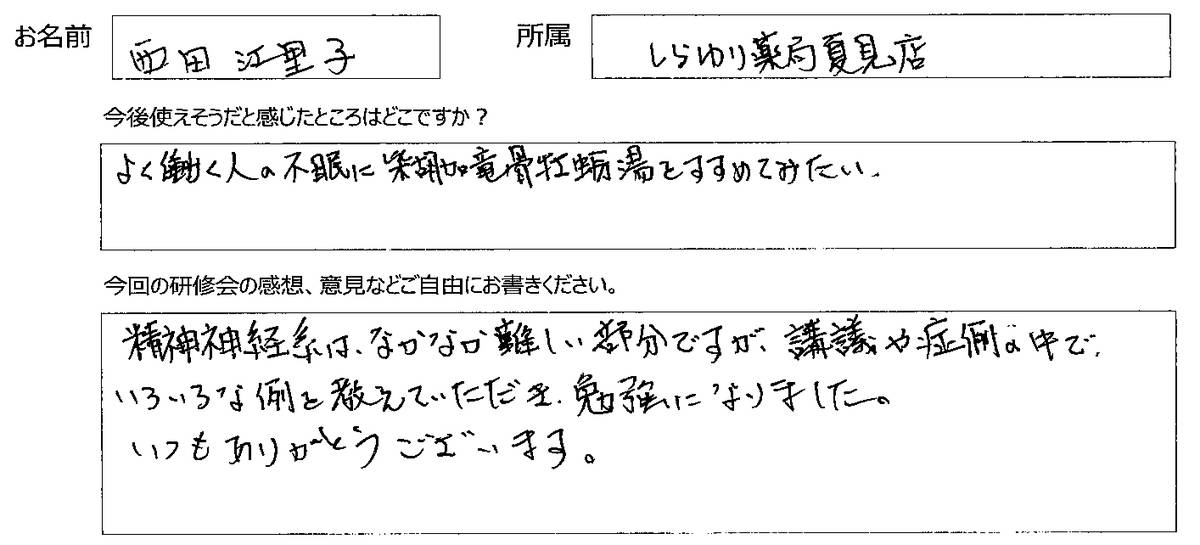 お名前 西田 江里子 所属 しらゆり薬局夏見店
今後使えそうだと感じたところはどこですか？
よく働く人の不眠に柴胡加竜骨牡蛎湯をすすめてみたい。
今回の研修会の感想、意見などご自由にお書きください。
精神神経系は、なかなか難しい部分ですが、講議や症例の中で、
いろいろな例を教えていただき、勉強になりました。
いつもありがとうございます。